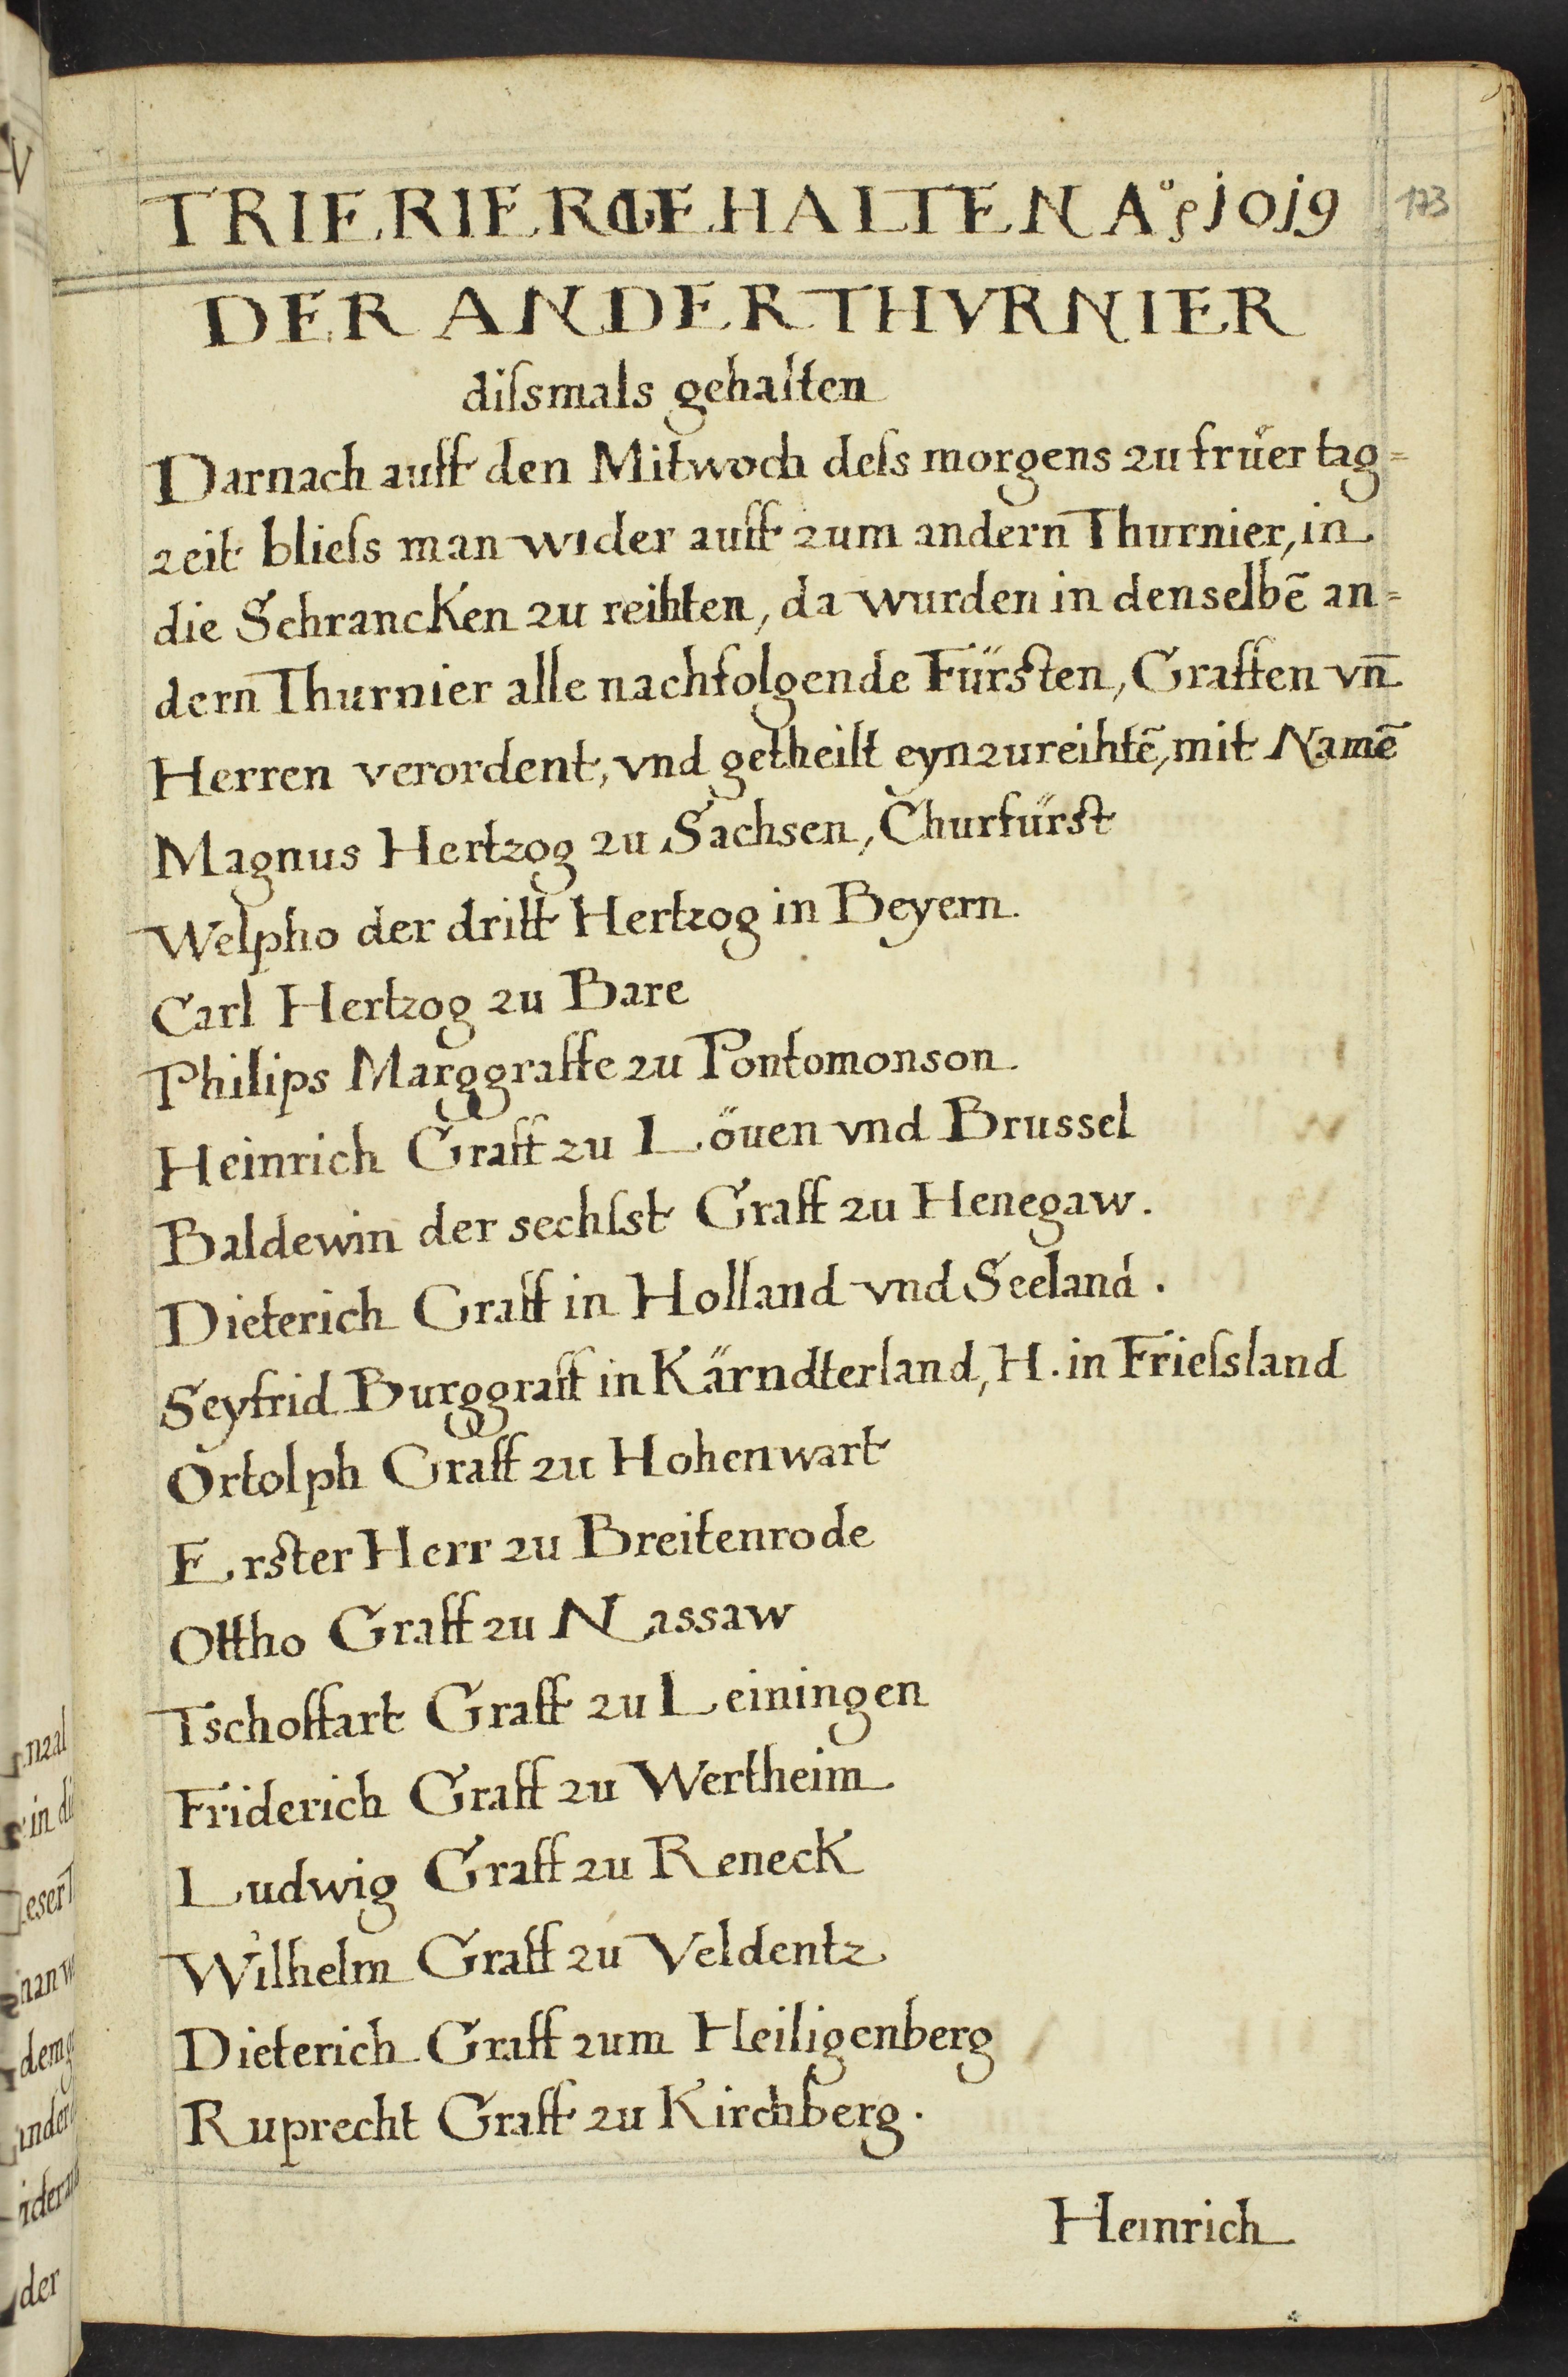 TRIERIER GEHALTEN Aº 1019
173
DER ANDER THVRNIER
diſsmals gehalten
Darnach auff den Mitwoch deſs morgens zu früer tag=
zeit blieſs man wider auff zum andern Thurnier, in
die Schrancken zu reihten, da wurden in denselbẽ an=
dern Thurnier alle nachfolgende Fürsten, Graffen vn̄
Herren verordent, vnd getheilt eynzureihtẽ, mit Namẽ
Magnus Hertzog zu Sachsen, Churfürst
Welpho der dritt Hertzog in Beyern.
Carl Hertzog zu Bare
Philips Marggraffe zu Pontomonson.
Heinrich Graff zu Löuen vnd Brussel
Baldewin der sechſst Graff zu Henegaw.
Dieterich Graff in Holland vnd Seeland.
Seyfrid Burggraff in Kärndterland, H. in Frieſsland
Ortolph Graff zu Hohenwart
Erster Herr zu Breitenrode
Ottho Graff zu Nassaw
Tschoffart Graff zu Leiningen
Friderich Graff zu Wertheim
Ludwig Graff zu Reneck
Wilhelm Graff zu Veldentz
Dieterich Graff zum Heiligenberg
Ruprecht Graff zu Kirchberg.
Heinrich